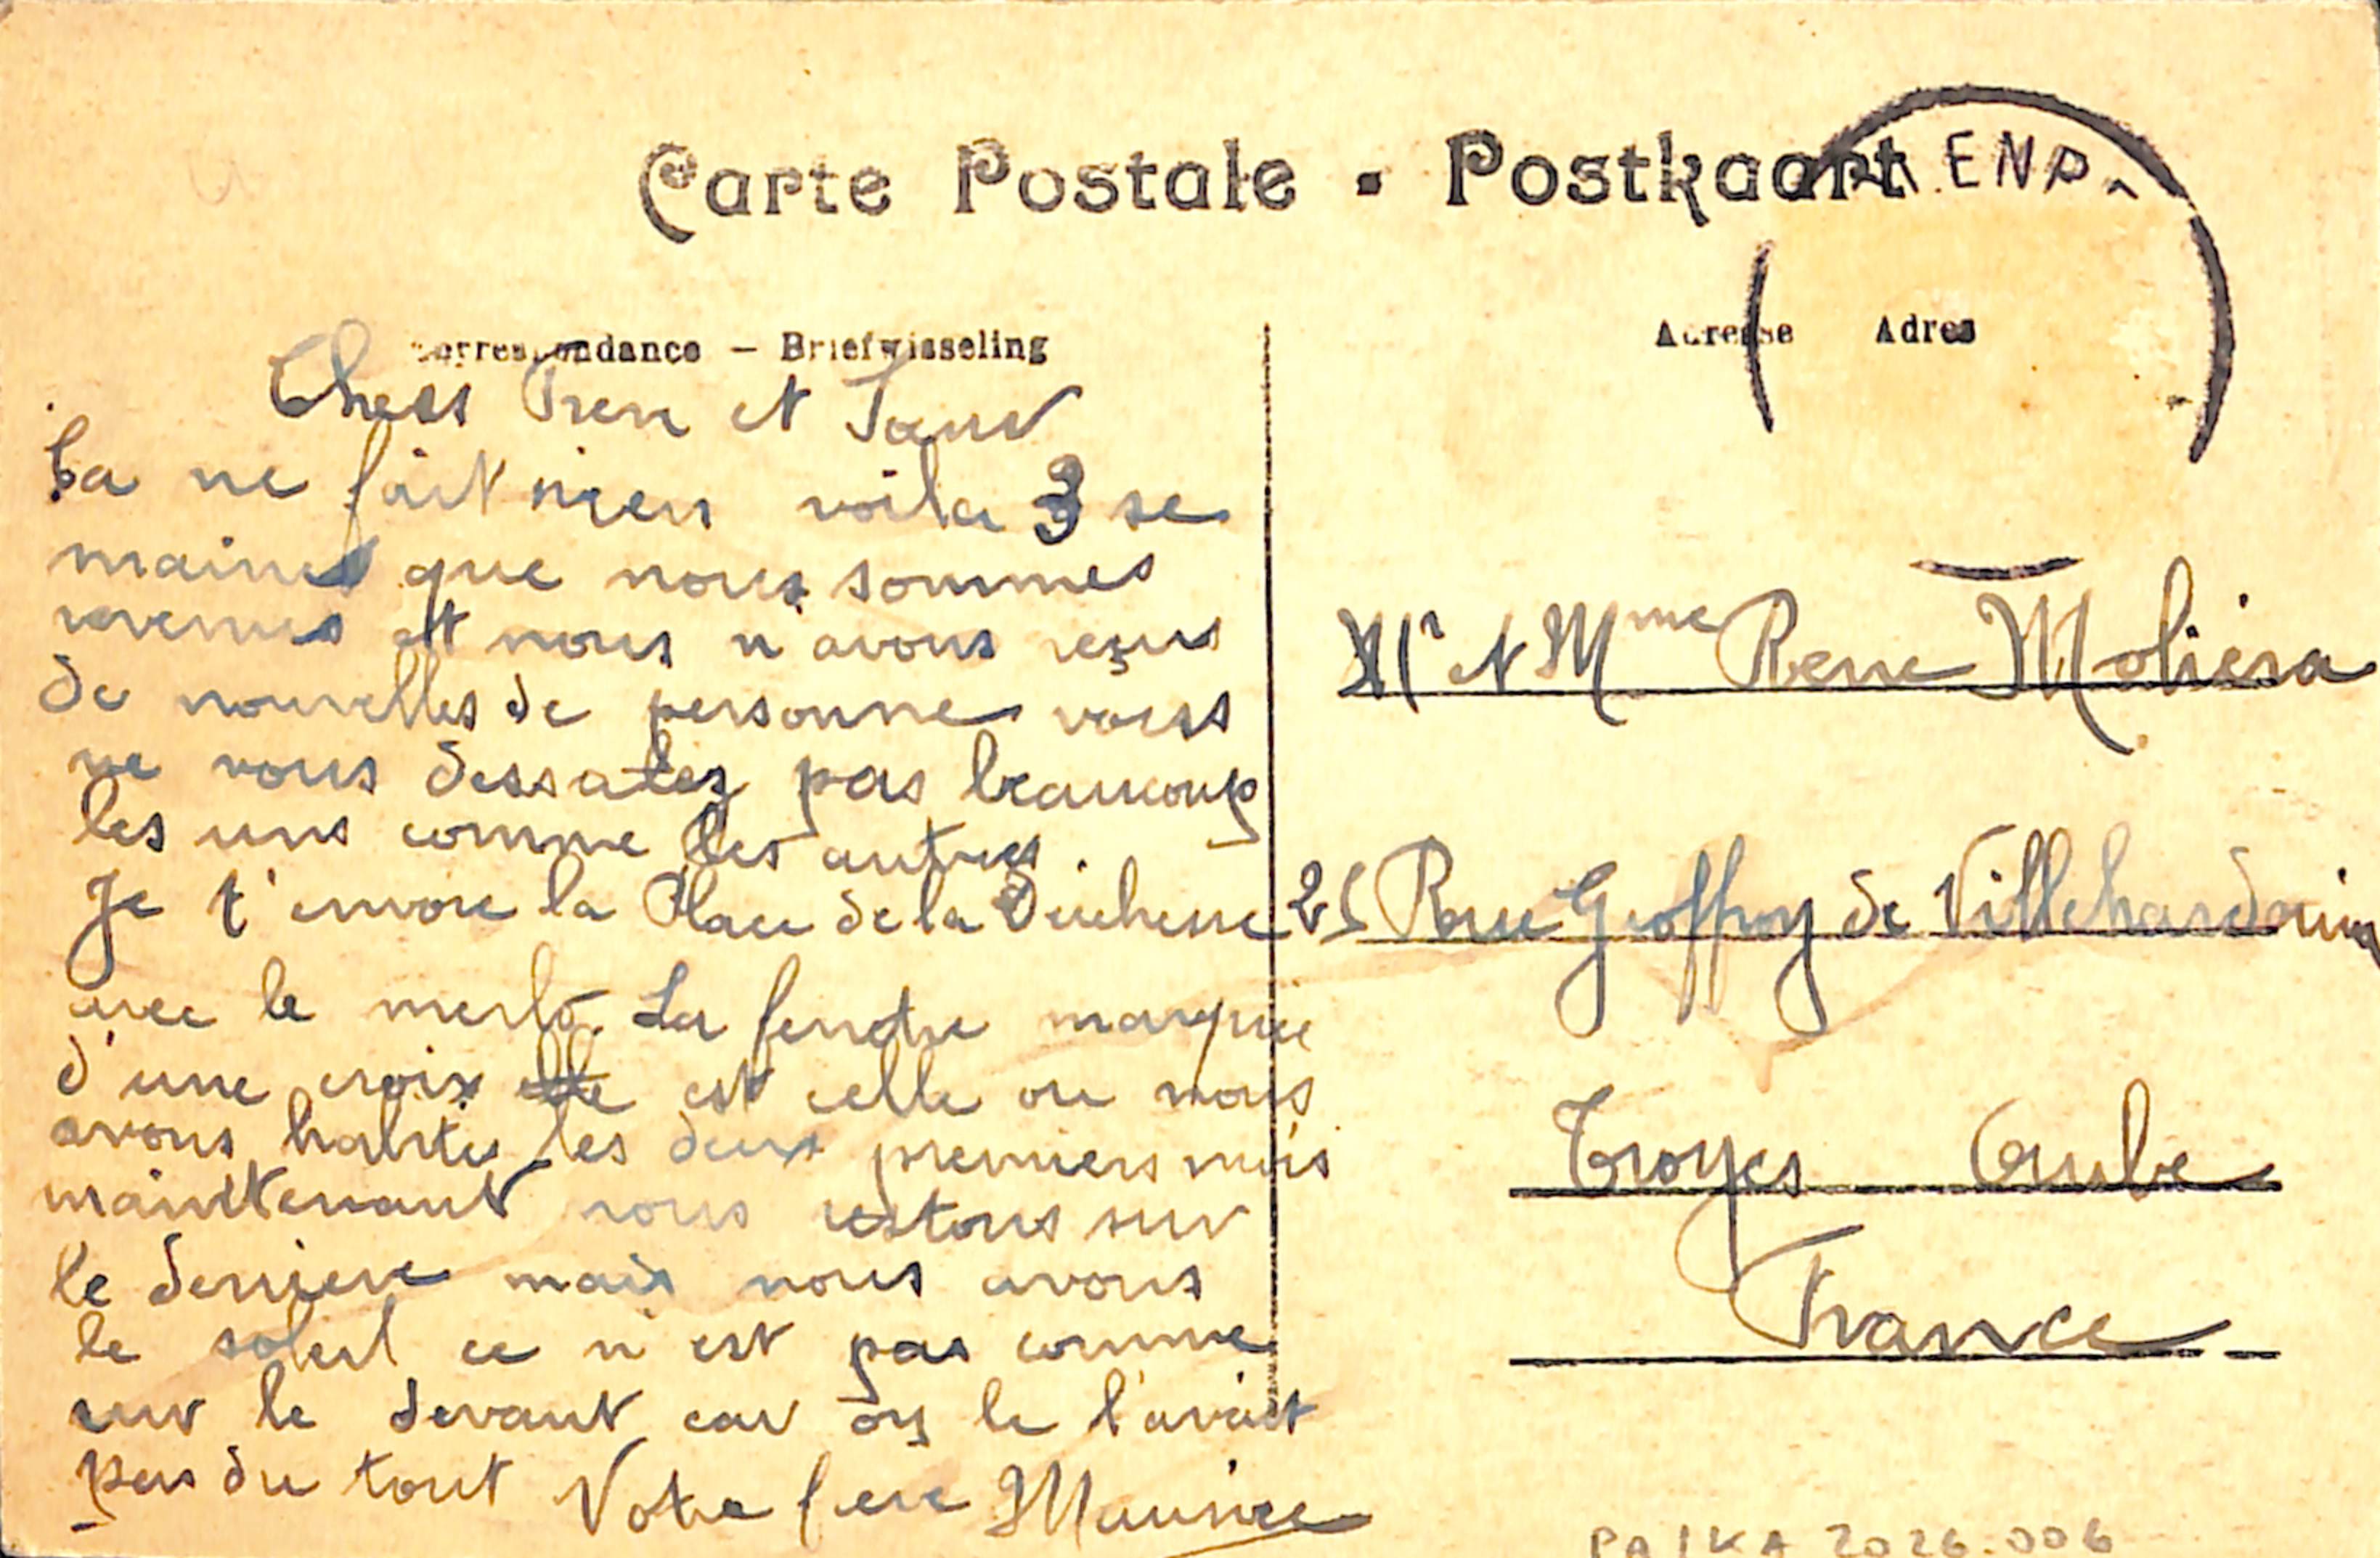 Carte Postale - Postkaart
Correspondance — Briefwisseling
Adresse Adres
Chers Frere et Sœur
Ca ne fait rien voila 3 se
maines que nous sommes
revenus et nous n'avons reçus
de nouvelles de personne vous
ne vous dessalez pas beaucoup
les uns comme les autres.
Je t'envoie la Place de la Duchesse
avec le merlo. La fenetre marquee
d'une croix elle est celle ou nous
avons habites les deux premiers mois
maintenant nous restons sur
le derriere mais nous avons
le soleil ce n'est pas comme
sur le devant car on le l'avait
pas du tout Votre frere Maurice
Mr et Mme Rene Moliera
25 Rue Geoffroy de Villehardouin
Troyes Aube
France
PAIKA 2026.006